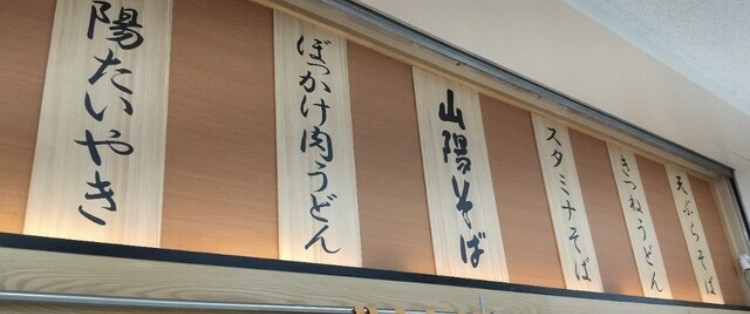 陽たいやき
ぼっかけ肉うどん
山陽そば
スタミナそば
きつねうどん
天ぷらそば